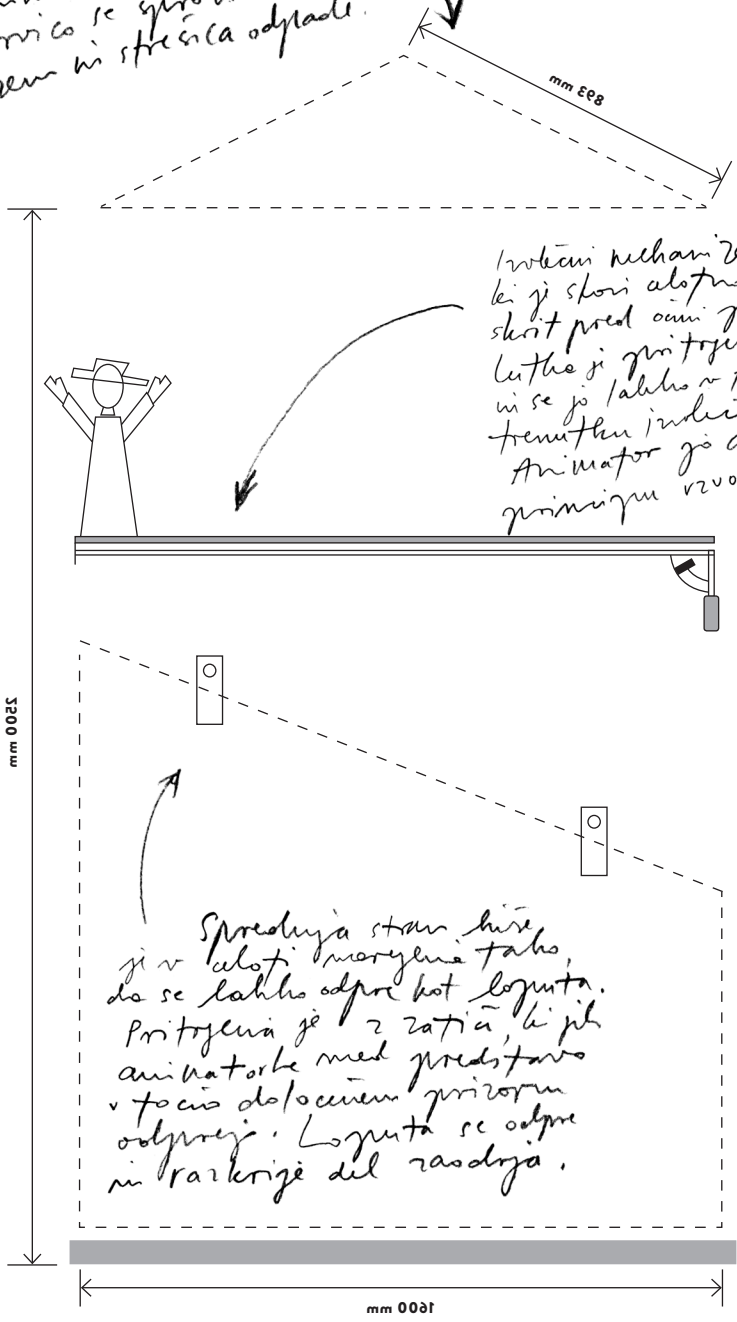 se
in strešica odpade.
893 mm
Izvlečni
ki je skoraj celotno
skrit pred očmi
Lutka je
in se jo lahko v
trenutku
Animator jo
principu
2500 mm
Sprednja stran hiše
je v celoti narejena tako,
da se lahko odpre kot loputa.
Pritrjena je z zatiči, ki jih
animatorke med predstavo
v točno določenem prizoru
odprejo. Loputa se odpre
in razkrije del zaodrja.
1600 mm